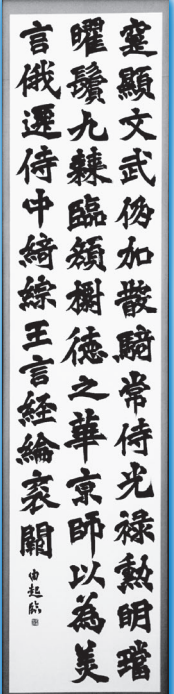 寔顯文武仍加散騎常侍光祿勲明璫
曜鬢九棘臨頍槲徳之華京師以為美
言俄遷侍中綺綜王言経綸袞闕
由起臨